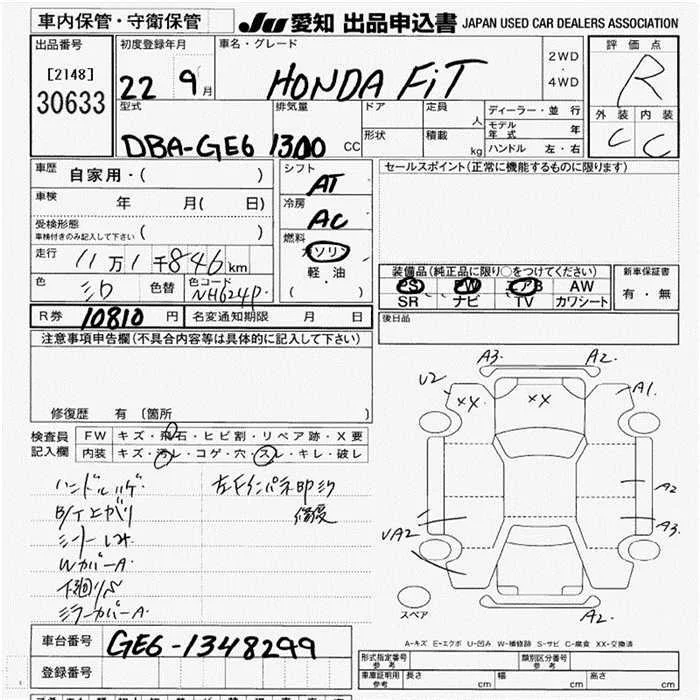 車内保管・守衛保管 JU 愛知 出品申込書 JAPAN USED CAR DEALERS ASSOCIATION
出品番号 初度登録年月 車名・グレード 2WD・4WD 評価点
[2148] 22 9月 HONDA FiT R
30633 型式 排気量 ドア 定員 人 ディーラー・並行 外装 内装
DBA-GE6 1300 CC 形状 積載 kg モデル年式 年 C C
ハンドル 左・右
車歴 自家用・( ) シフト AT セールスポイント(正常に機能するものに限ります)
車検 年 月( 日) 冷房 AC
受検形態
車検付きのみ記入して下さい ( ) 燃料 ガソリン
走行 11万1千846km 軽油 装備品(純正品に限り○をつけてください) 新車保証書
色 シロ 色替 色コード NH624P ( ) PS PW エアB AW 有・無
SR ナビ TV カワシート
R券 10810円 名変通知期限 月 日 後日品
注意事項申告欄(不具合内容等は具体的に記入して下さい)
A3. A2.
U2 XX XX A1.
修復歴 有 (箇所 )
検査員記入欄 FW キズ・飛石・ヒビ割・リペア跡・X要
内装 キズ・汚レ・コゲ・穴・スレ・キレ・破レ
ハンドルハゲ
A2
A3.
WカバーA
UA2
下廻りS
ミラーカバーA
スペア A2.
A-キズ E-エクボ U-凹み W-補修跡 S-サビ C-腐食 XX-交換済
車台番号 GE6-1348299
登録番号
形式指定番号 参考 類別区分番号 参考
車庫証明用 参考 長さ cm 幅 cm 高さ cm